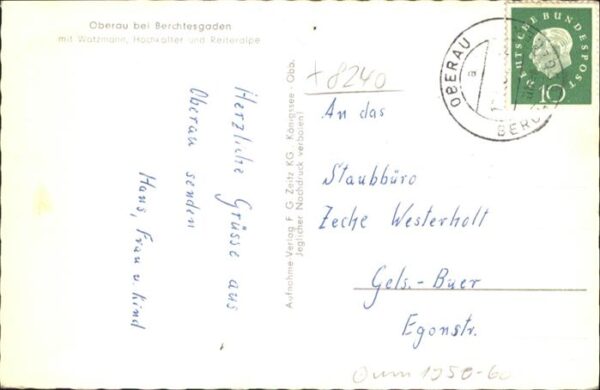 Oberau bei Berchtesgaden
mit Watzmann, Hochkalter und Reiteralpe
Herzliche Grüsse aus
Oberau senden
Hans, Frau u. Kind
Aufnahme Verlag F. G. Zeitz KG. Königssee-Obb.
Jeglicher Nachdruck verboten!
+8240
DEUTSCHE BUNDESPOST
10
OBERAU
a
BERCH
An das
Staubbüro
Zeche Westerholt
Gels.-Buer
Egonstr.
1958-60